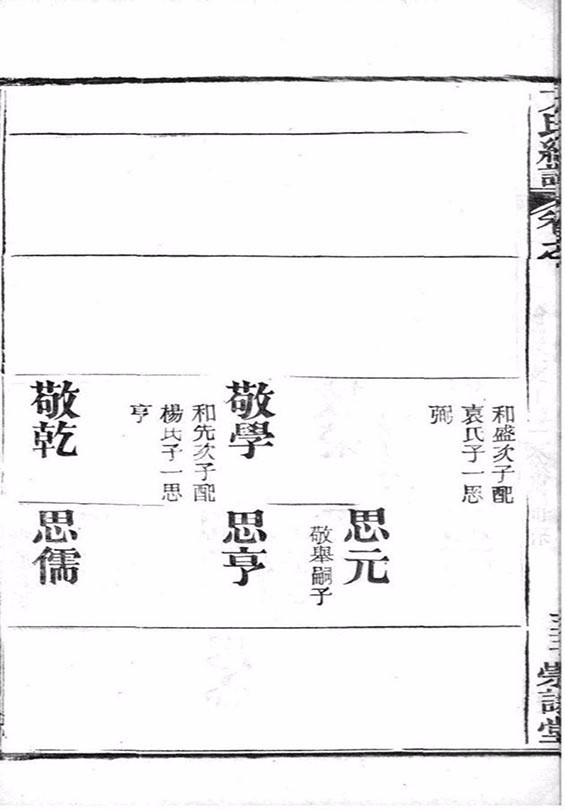 和盛次子配
袁氏子一思
弼
敬學
和先次子配
楊氏子一思
亨
敬乾
思元
敬舉嗣子
思亨
思儒